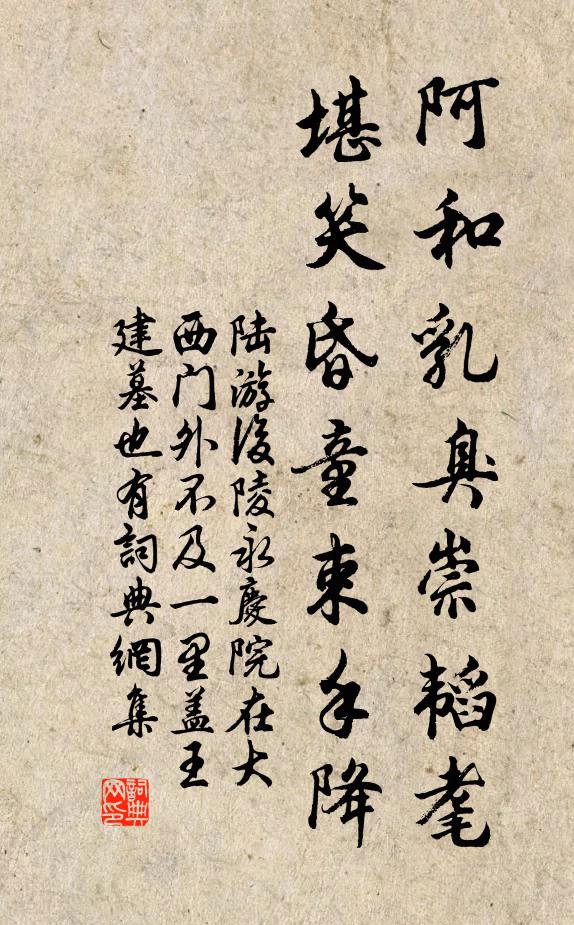 阿和乳臭崇韬耄
堪笑昏童束手降
陆游後陵永慶院在大
西门外不及一里蓋王
建墓也有詞典網集
詞典网印